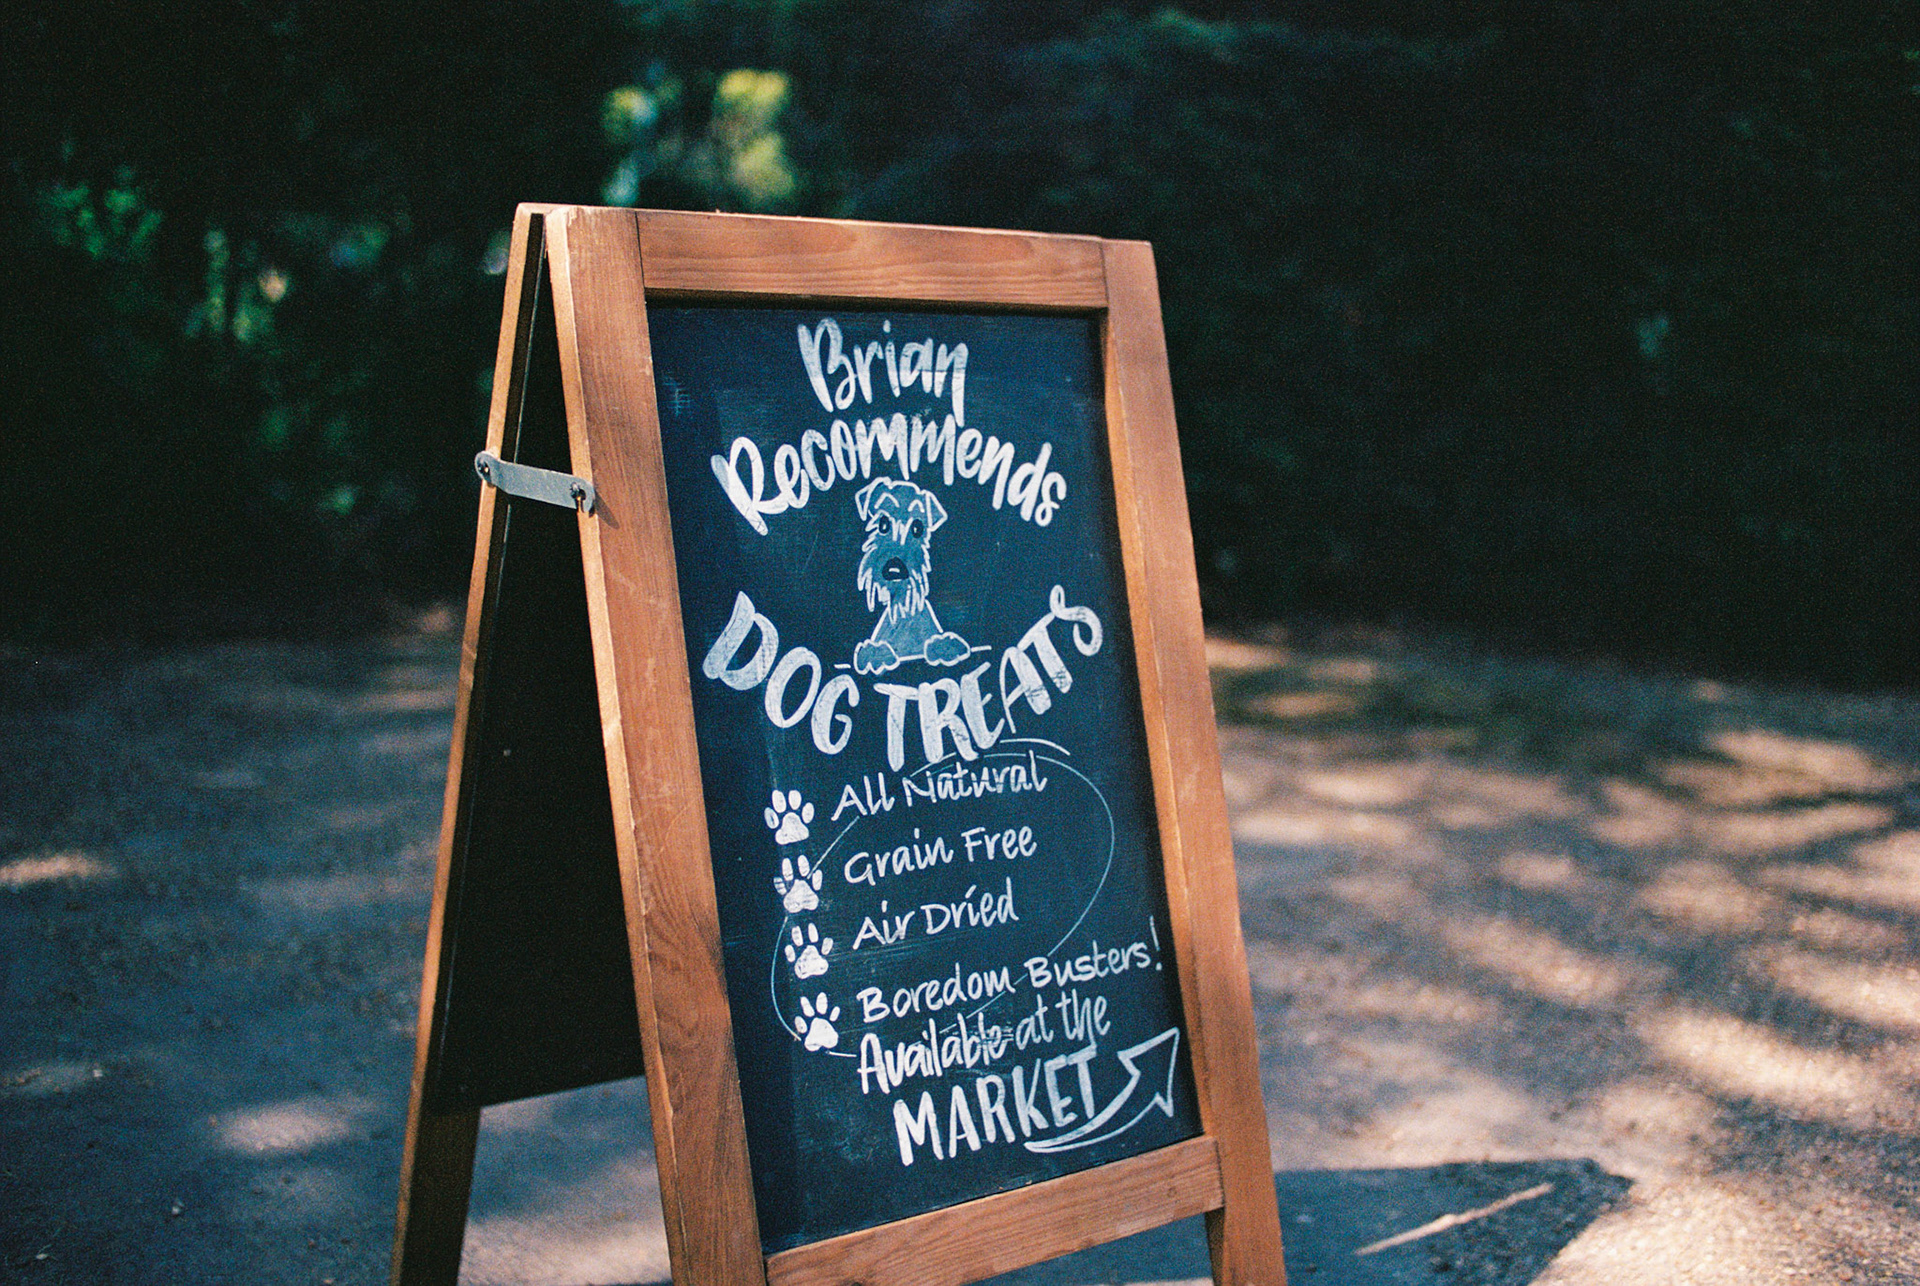 Brian
Recommends
DOG TREATS
All Natural
Grain Free
Air Dried
Boredom Busters!
Available at the
MARKET